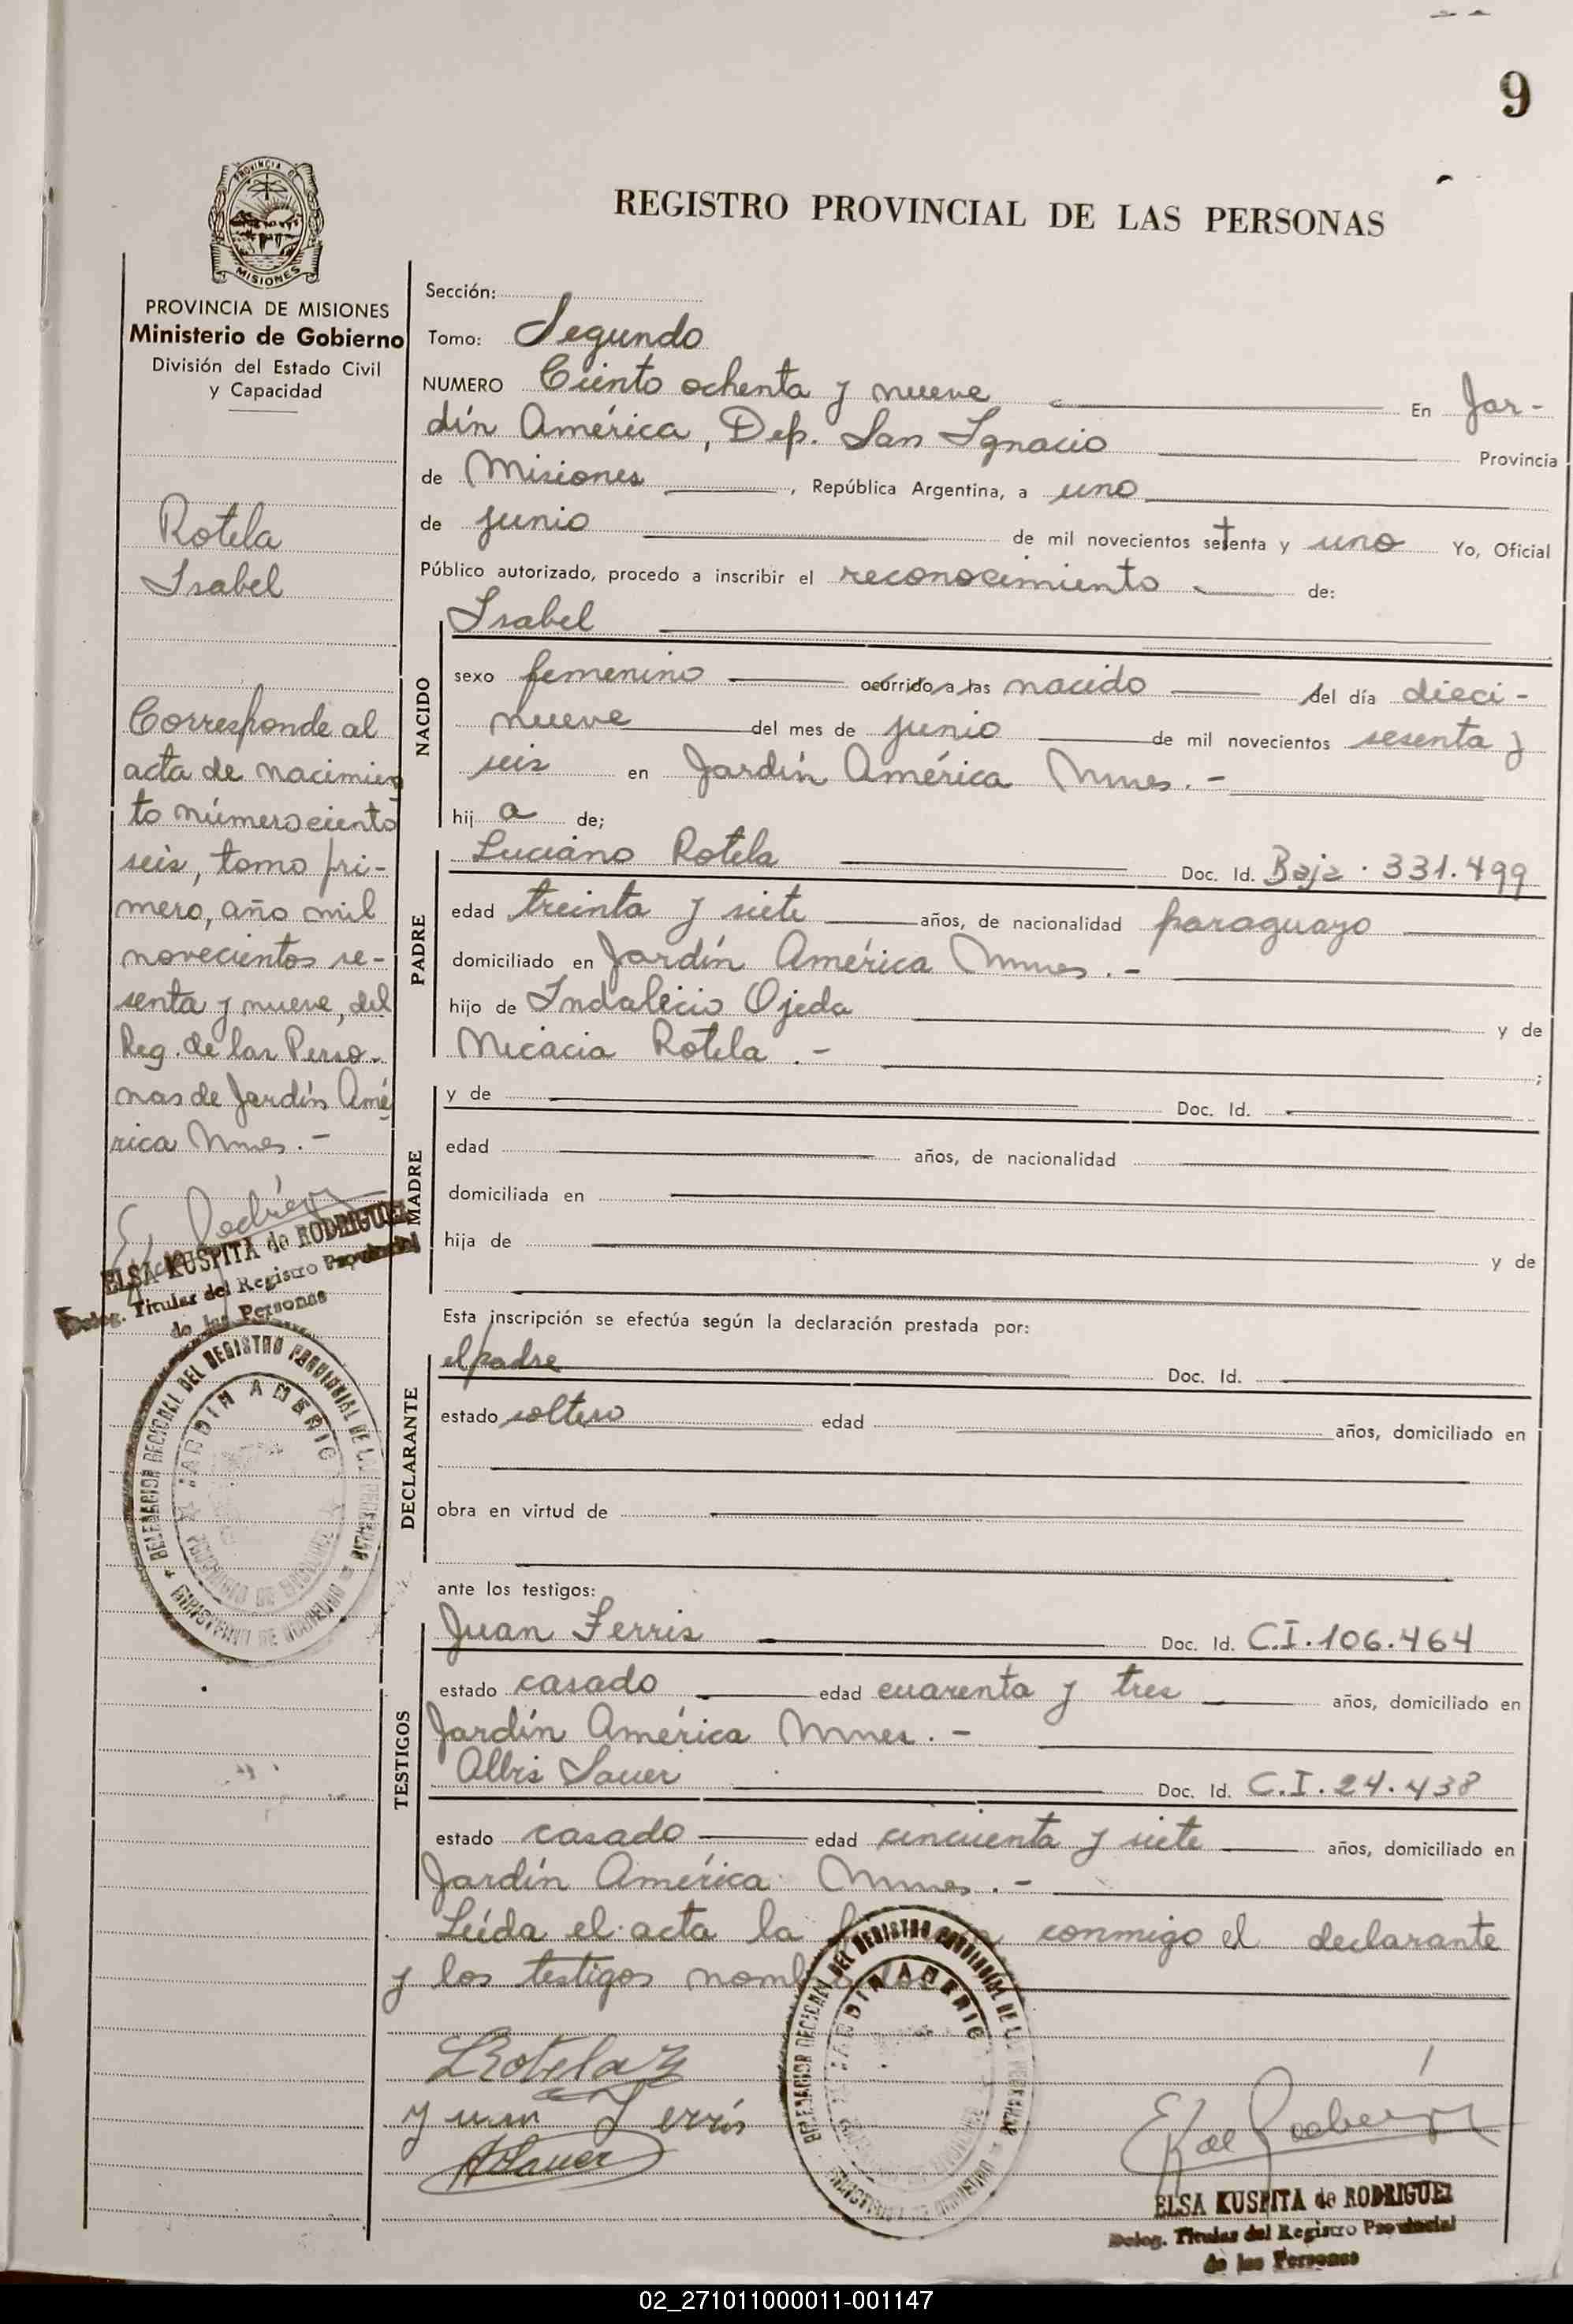 9
REGISTRO PROVINCIAL DE LAS PERSONAS
PROVINCIA DE
MISIONES
PROVINCIA DE MISIONES
Ministerio de Gobierno
División del Estado Civil
y Capacidad
Rotela
Isabel
Corresponde al
acta de nacimien
to número ciento
seis, tomo pri-
mero, año mil
novecientos se-
senta y nueve, del
Reg. de las Perso-
nas de Jardín Amé
rica Mnes. -
ELSA KUSPITA de RODRIGUEZ
Deleg. Titular del Registro Provincial
de las Personas
Sección:
Tomo: Segundo
NUMERO Ciento ochenta y nueve En Jar-
dín América, Dep. San Ignacio Provincia
de Misiones, República Argentina, a uno
de junio de mil novecientos setenta y uno Yo, Oficial
Público autorizado, procedo a inscribir el reconocimiento de:
Isabel
NACIDO
sexo femenino ocurrido a las nacido del día dieci-
nueve del mes de junio de mil novecientos sesenta y
seis en Jardín América Mnes. -
hij a de;
PADRE
Luciano Rotela Doc. Id. Baja. 331.499
edad treinta y siete años, de nacionalidad paraguayo
domiciliado en Jardín América Mnes. -
hijo de Indalicio Ojeda y de
Micacia Rotela. - ;
MADRE
y de Doc. Id.
edad años, de nacionalidad
domiciliada en
hija de y de
Esta inscripción se efectúa según la declaración prestada por:
DECLARANTE
el padre Doc. Id.
estado soltero edad años, domiciliado en
obra en virtud de
ante los testigos:
TESTIGOS
Juan Ferris Doc. Id. C.I. 106.464
estado casado edad cuarenta y tres años, domiciliado en
Jardín América Mnes. -
Albis Sauer Doc. Id. C.I. 24.438
estado casado edad cincuenta y siete años, domiciliado en
Jardín América Mnes. -
Leída el acta la conmigo el declarante
y los testigos
LRotela
Juan Ferris
ASauer
ELSA KUSPITA de RODRIGUEZ
Deleg. Titular del Registro Provincial
de las Personas
02_271011000011-001147